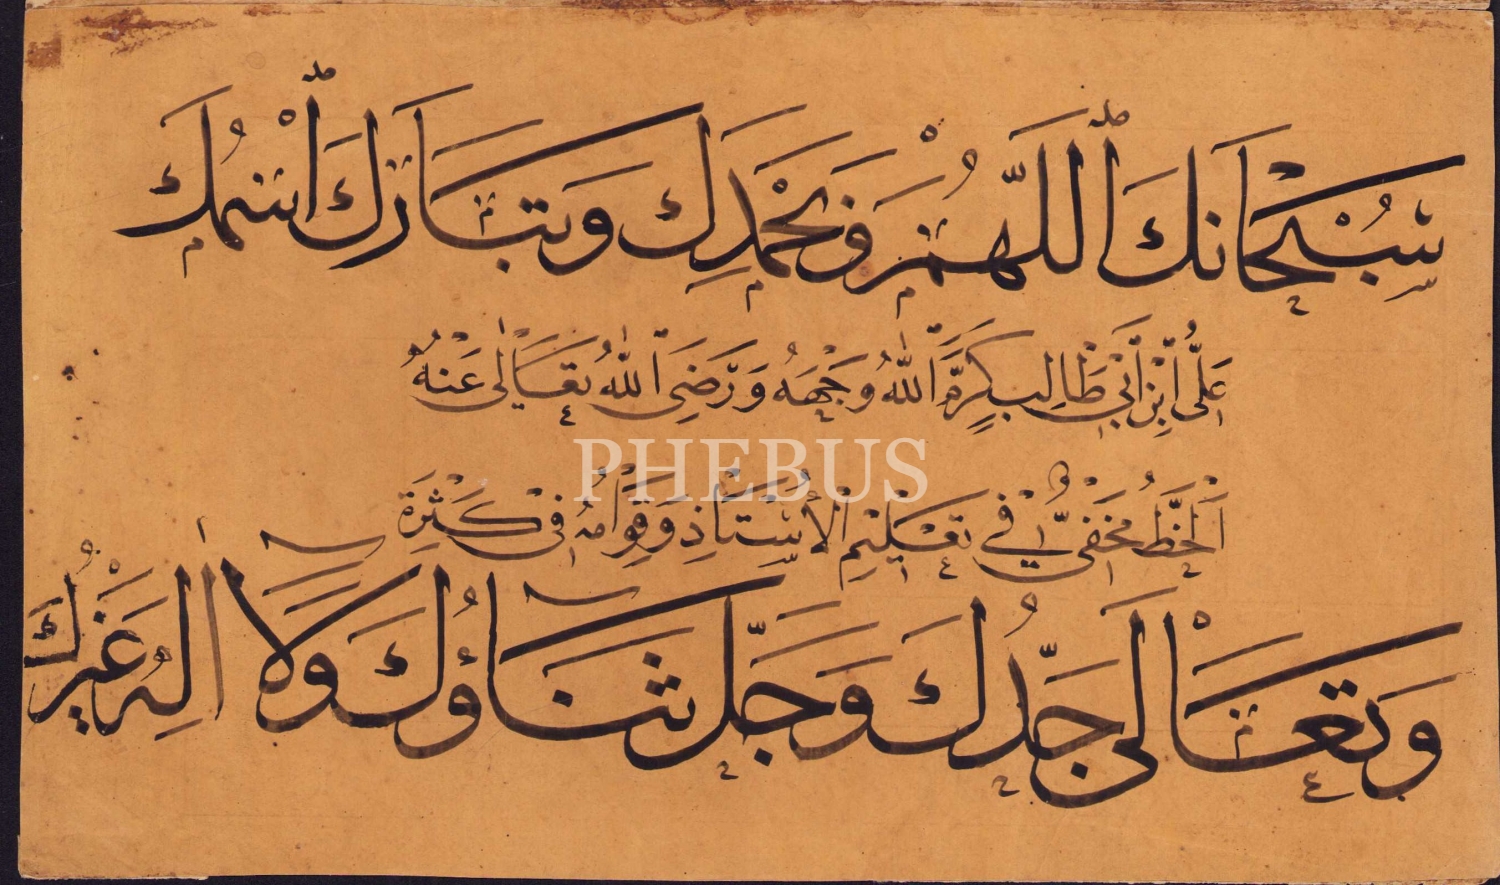 سُبْحَانَكَ اَللّٰهُمَّ وَبِحَمْدِكَ وَتَبَارَكَ اسْمُكَ
عَلِيُّ ابْنُ اَبِي طَالِبِ كَرَّمَ اللّٰهُ وَجْهَهُ وَرَضِيَ اللّٰهُ تَعَالٰى عَنْهُ
PHEBUS
اَلْخَطُّ مَخْفِيٌّ فِي تَعْلِيْمِ الْأُسْتَاذِ وَقِوَامُهُ فِيْ كَثْرَةِ
وَتَعَالٰى جَدُّكَ وَجَلَّ ثَنَاؤُكَ وَلَا اِلٰهَ غَيْرُكَ